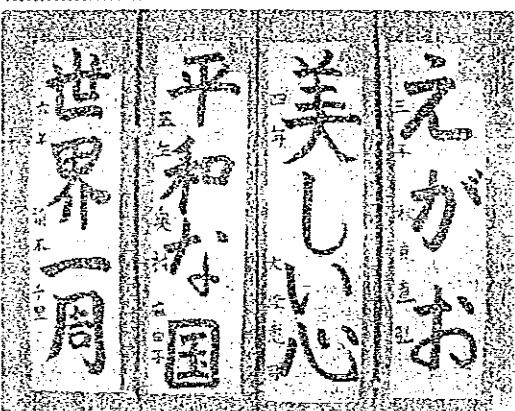 えがお
三年
美しい心
四年
平和な国
五年
世界一周
六年